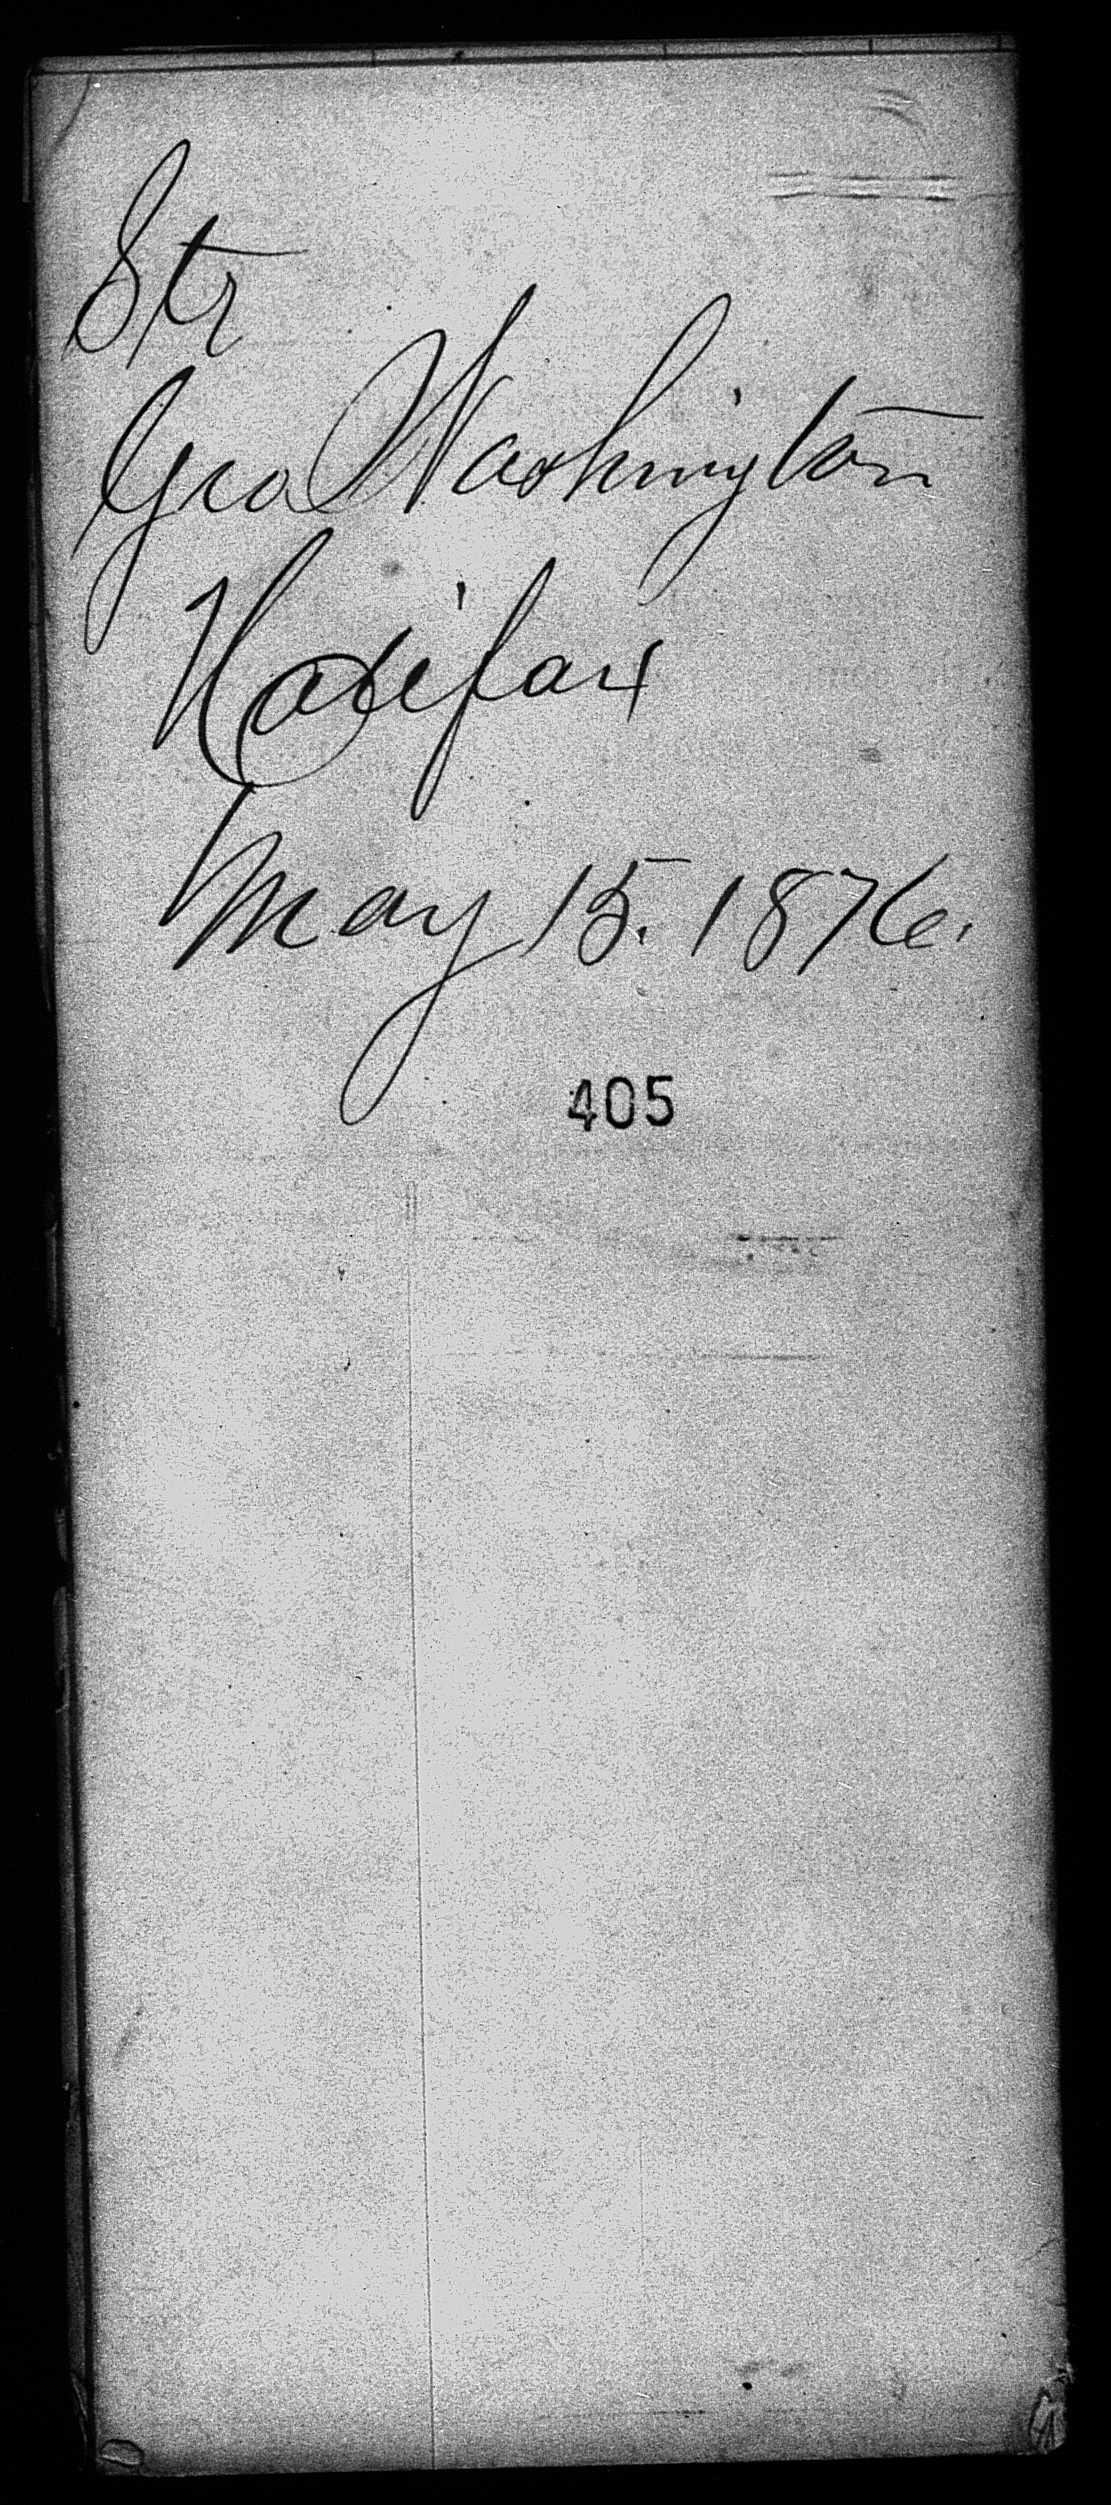 Str
Geo Washington
Halifax
May 15. 1876.
405